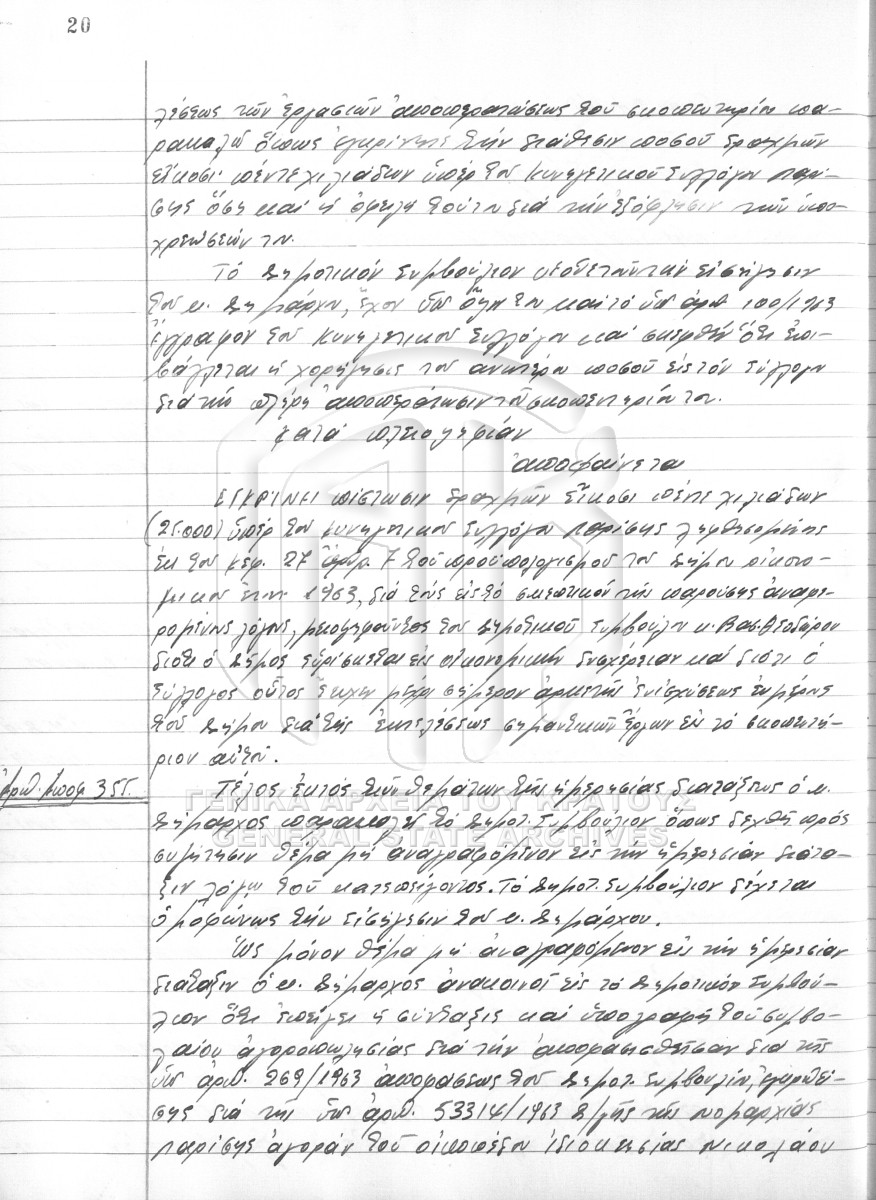 20
λέσεως τῶν ἐργασιῶν ἀποπερατώσεως τοῦ σκοπευτηρίου πα-
ρακαλῶ ὅπως ἐγκρίνητε τὴν διάθεσιν ποσοῦ δραχμῶν
εἴκοσι πέντε χιλιάδων ὑπὲρ τοῦ Κυνηγετικοῦ Συλλόγου Λαρί-
σης ὅση καὶ ἡ ὀφειλὴ τούτου διὰ τὴν ἐξόφλησιν τῶν ὑπο-
χρεώσεών του.
Τὸ Δημοτικὸν Συμβούλιον υἱοθετοῦν τὴν εἰσήγησιν
τοῦ κ. Δημάρχου, ἔχον ὑπ' ὄψη του καὶ τὸ ὑπ' ἀριθ. 100/1963
ἔγγραφον τοῦ Κυνηγετικοῦ Συλλόγου καὶ σκεφθὲν ὅτι ἐπι-
βάλλεται ἡ χορήγησις τοῦ ἀνωτέρω ποσοῦ εἰς τὸν Σύλλογον
διὰ τὴν πλήρη ἀποπεράτωσιν τοῦ σκοπευτηρίου του.
Κατὰ πλειοψηφίαν
ἀποφαίνεται
ΕΓΚΡΙΝΕΙ πίστωσιν δραχμῶν εἴκοσι πέντε χιλιάδων
(25.000) ὑπὲρ τοῦ Κυνηγετικοῦ Συλλόγου Λαρίσης ληφθησομένης
ἐκ τοῦ κεφ. 27 ἄρθρ. 7 τοῦ προϋπολογισμοῦ τοῦ Δήμου οἰκονο-
μικοῦ ἔτους 1963, διὰ τοὺς εἰς τὸ σκεπτικὸν τῆς παρούσης ἀναφε-
ρομένους λόγους, μειοψηφοῦντος τοῦ Δημοτικοῦ Συμβούλου κ. Βασ. Θεοδώρου
διότι ὁ Δῆμος εὑρίσκεται εἰς οἰκονομικὴν δυσχέρειαν καὶ διότι ὁ
Σύλλογος οὗτος ἔτυχεν μέχρι σήμερον ἀρκετῆς ἐνισχύσεως ἐκ μέρους
τοῦ Δήμου διὰ τῆς ἐκτελέσεως σημαντικῶν ἔργων εἰς τὸ σκοπευτή-
ριον αὐτοῦ.
Ἀριθ. Ἀποφ 355.
Τέλος ἐκτὸς τῶν θεμάτων τῆς ἡμερησίας διατάξεως ὁ κ.
ΓΕΝΙΚΑ ΑΡΧΕΙΑ ΤΟΥ ΚΡΑΤΟΥΣ
Δήμαρχος παρακαλεῖ τὸ Δημοτ. Συμβούλιον ὅπως δεχθῆ πρὸς
GENERAL STATE ARCHIVES
συζήτησιν θέμα μὴ ἀναγραφόμενον εἰς τὴν ἡμερησίαν διάτα-
ξιν λόγω τοῦ κατεπείγοντος. Τὸ Δημοτ. Συμβούλιον δέχεται
ὁμοφώνως τὴν εἰσήγησιν τοῦ κ. Δημάρχου.
Ὡς μόνον θέμα μὴ ἀναγραφόμενον εἰς τὴν ἡμερησίαν
διάταξιν ὁ κ. Δήμαρχος ἀνακοινοῖ εἰς τὸ Δημοτικὸν Συμβού-
λιον ὅτι ἐπείγει ἡ σύνταξις καὶ ὑπογραφὴ τοῦ συμβο-
λαίου ἀγοροπωλησίας διὰ τὴν ἀποφασισθεῖσαν διὰ τῆς
ὑπ' ἀριθ. 269/1963 ἀποφάσεως τοῦ Δημοτ. Συμβουλίου, ἐγκριθεί-
σης διὰ τῆς ὑπ' ἀριθ. 53314/1963 Δ/γῆς τῆς Νομαρχίας
Λαρίσης ἀγορὰν τοῦ οἰκοπέδου ἰδιοκτησίας Νικολάου